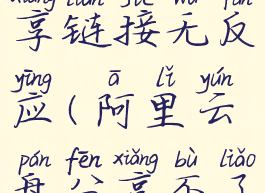 xiǎng liàn jiē wú fǎn
享链接无反
yīng ā lǐ yún
应(阿里云
pán fēn xiǎng bù liǎo
盘分享不了